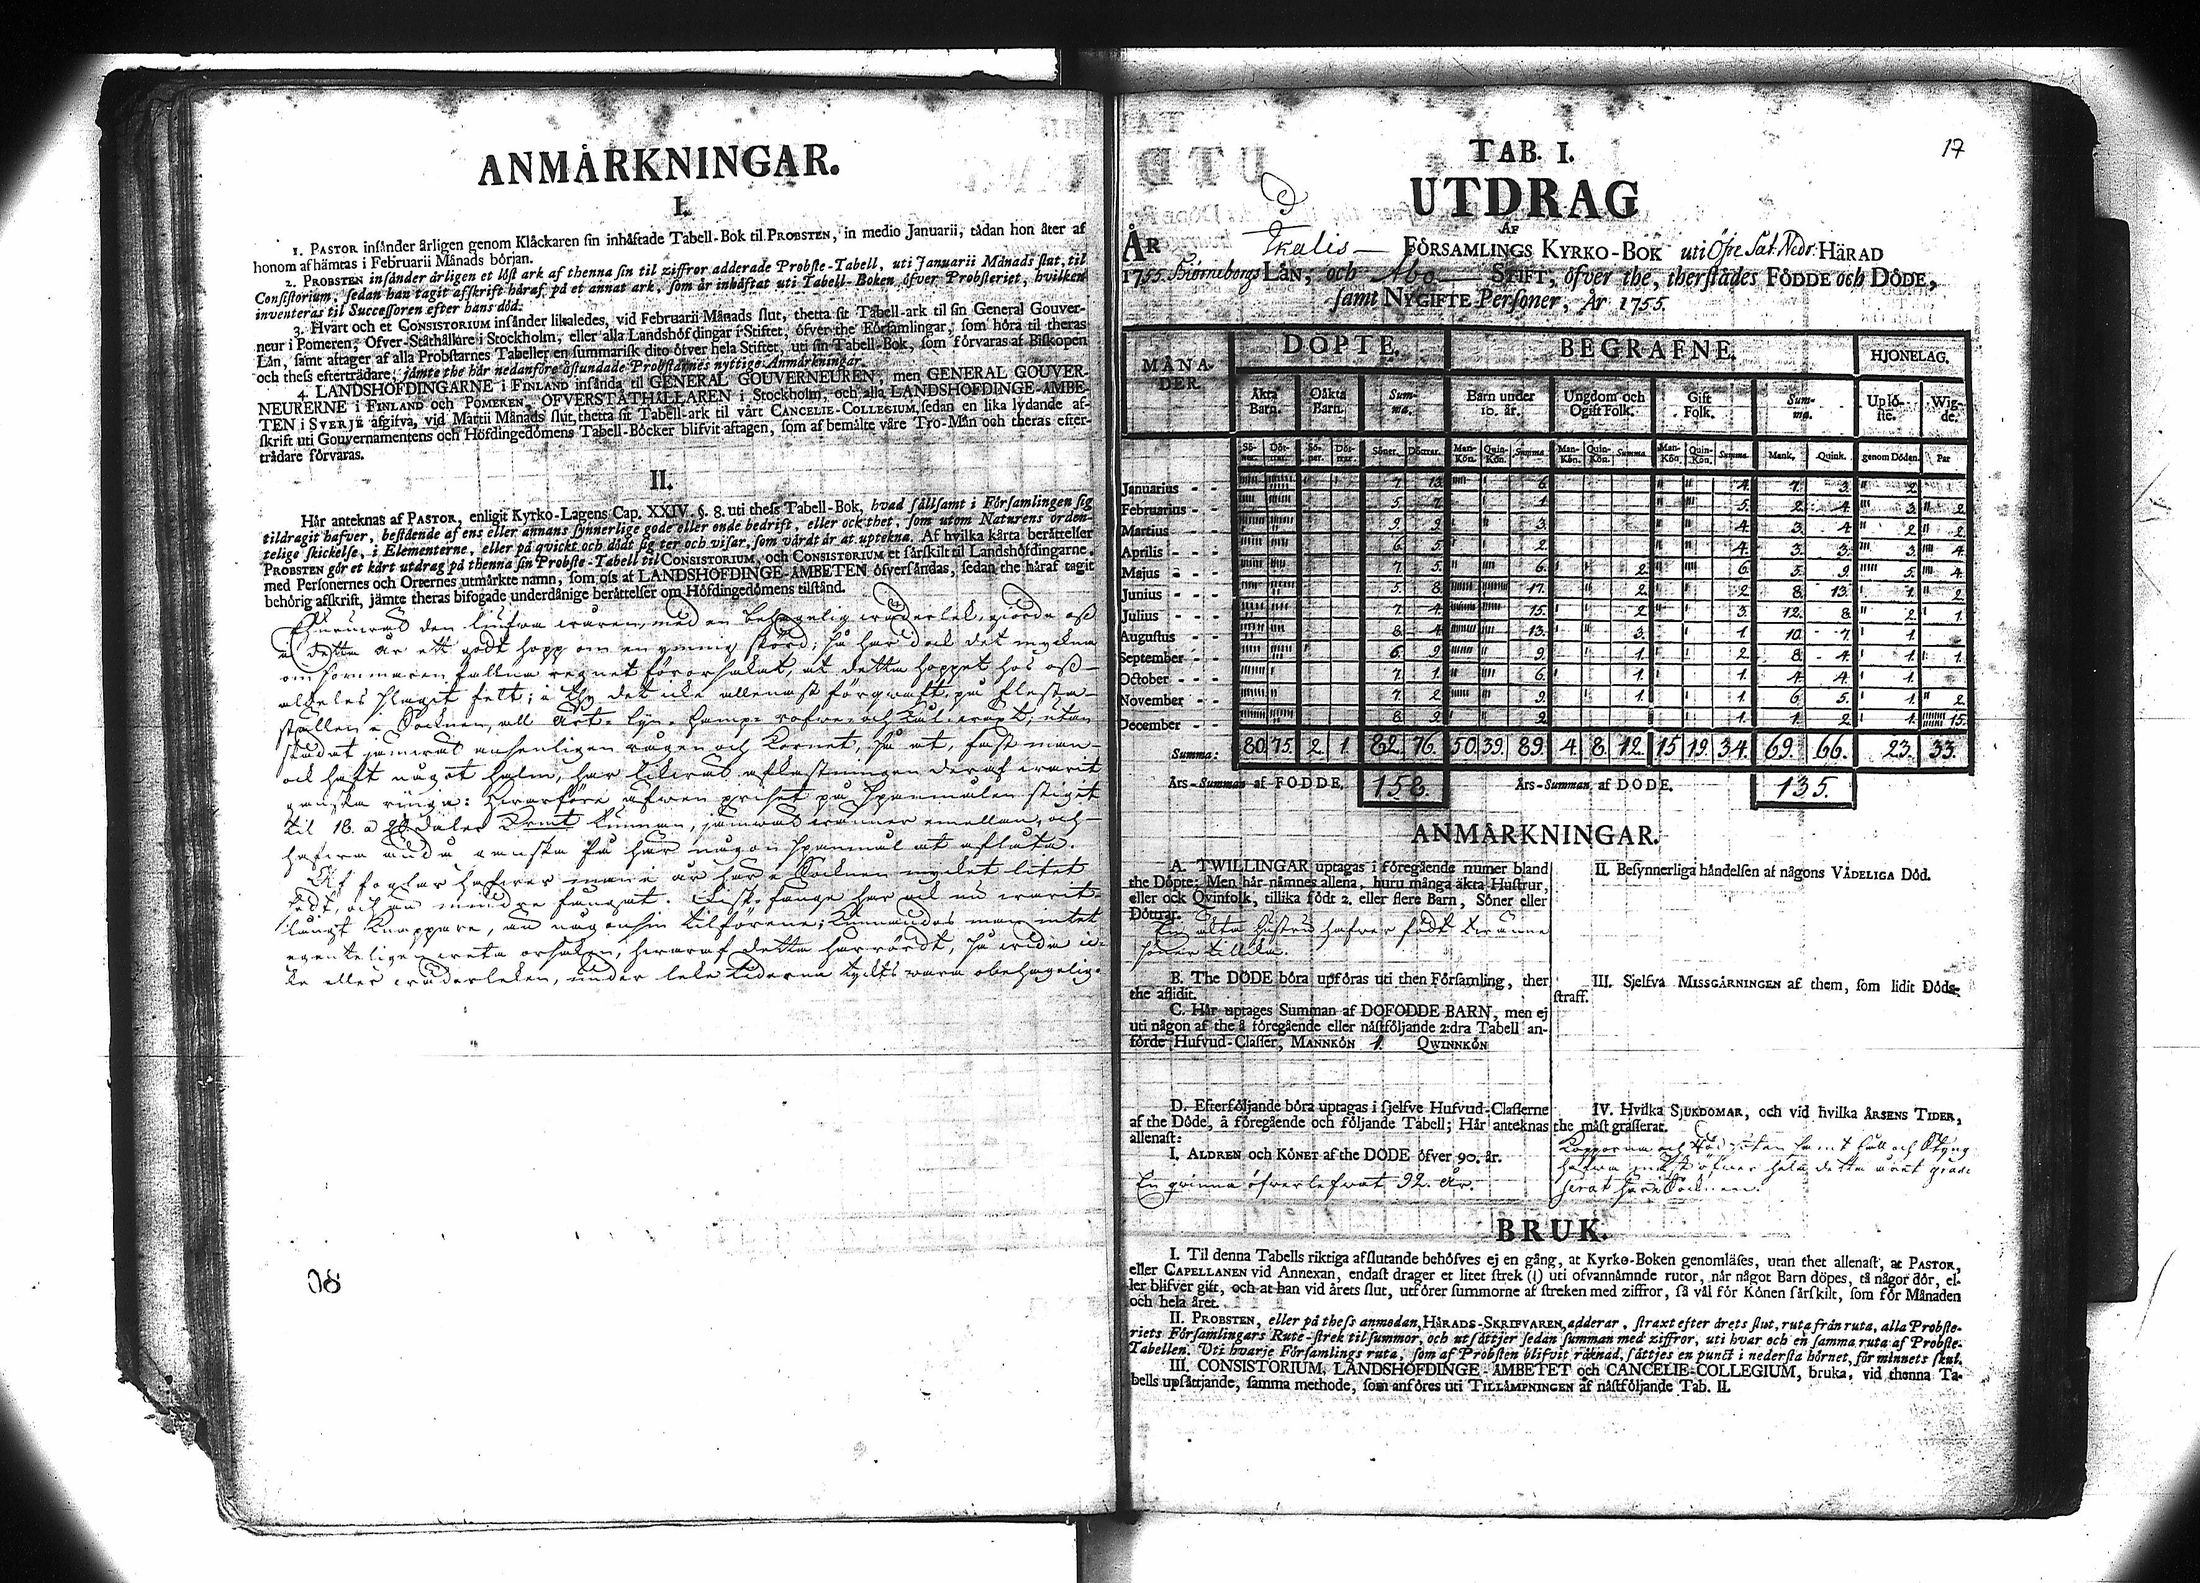 ANMÄRKNINGAR.
I.
1. PASTOR insänder årligen genom Klåckaren sin inhäftade Tabell-Bok til PROBSTEN, in medio Januarii, tädan hon åter af
honom afhämtas i Februarii Månads början.
2. PROBSTEN insänder årligen et löst ark af thenna sin til ziffror adderade Probste-Tabell, uti Januarii Månads slut, til
Consistorium, sedan han tagit afskrift häraf på et annat ark, som är inhäftat uti Tabell-Boken öfver Probsteriet, hvilken
inventeras til Successoren efter hans död.
3. Hvart och et CONSISTORIUM insänder likaledes, vid Februarii Månads slut, thetta sit Tabell-ark til sin General Gouver-
neur i Pomeren, Öfver-Ståthållare i Stockholm, eller alla Landshöfdingar i Stiftet, öfver the Församlingar, som höra til theras
Län, samt aftager af alla Probstarnes Tabeller en summarisk dito öfver hela Stiftet, uti sin Tabell-Bok, som förvaras af Biskopen
och thess efterträdare, jämte the här nedanföre åstundade Probstarnes nyttige Anmärkningar.
4. LANDSHÖFDINGARNE i FINLAND insända til GENERAL GOUVERNEUREN, men GENERAL GOUVER-
NEURERNE i FINLAND och POMEREN, ÖFVERSTÅTHÅLLAREN i Stockholm, och alla LANDSHÖFDINGE-ÄMBE-
TEN i SVERJE afgifva, vid Martii Månads slut, thetta sit Tabell-ark til vårt CANCELIE-COLLEGIUM, sedan en lika lydande af-
skrift uti Gouvernamentens och Höfdingedömens Tabell-Böcker blifvit aftagen, som af bemälte våre Tro-Män och theras efter-
trädare förvaras.
II.
Här anteknas af PASTOR, enligit Kyrko-Lagens Cap. XXIV. §. 8. uti thess Tabell-Bok, hvad sällsamt i Församlingen sig
tildragit hafver, bestående af ens eller annans synnerlige gode eller onde bedrift, eller ock thet, som utom Naturens orden-
telige skickelse, i Elementerne, eller på qvickt och dödt sig ter och visar, som värdt är at uptekna. Af hvilka kårta berättelser
PROBSTEN gör et kårt utdrag på thenna sin Probste-Tabell til CONSISTORIUM, och CONSISTORIUM et särskilt til Landshöfdingarne,
med Personernes och Orternes utmärkte namn, som oss af LANDSHÖFDINGE-ÄMBETEN öfversändas, sedan the häraf tagit
behörig afskrift, jämte theras bifogade underdånige berättelser om Höfdingedömens tilstånd.
den liufva wåren, med en behagelig wäderlek, giorde oss
i detta år ett godt hopp om en ymnig skörd; så har dock det myckna
om sommaren fallna regnet förorsakat, at detta hoppet hos oss
aldeles slagit felt; i thy det icke allenast förqwaft, på flesta
ställen i Socknen, all Ärt- Lin- Hamp- rofwe- och Kål-wäxt; utan
skadat jämwäl ansenligen rågen och Kornet, så at, fast man
ock haft något halm, har likwäl afkastningen deraf warit
ganska ringa: hwarföre äfwen priset på Spannmålen stiget
til 18. a 20 daler Kmt tunnan, wänner emellan, och
hafwa ändå ganska få här någon Spannmål at aflåta.
Af foglar hafwer man i år här i Socknen mycket litet
sedt, och än mindre fångat. Fisk-fänge har ock nu warit
långt knappare, än någonsin tilförene; kunnandes man intet
egenteligen weta orsaken, hwaraf detta har rördt, så wida ic-
ke eller wäderleken, under lektiderna tyckts wara obehagelig.
17
TAB. I.
UTDRAG
AF
ÅR Ikalis FÖRSAMLINGS KYRKO-BOK uti Öfre Sat. Nedr. HÄRAD
1755. Biörneborgs LÄN, och Åbo STIFT, öfver the, therstädes FÖDDE och DÖDE,
samt NYGIFTE Personer, År 1755.
MÅNA-DER. DÖPTE. BEGRAFNE. HJONELAG.
Äkta Barn. Oäkta Barn. Sum-ma. Barn under 10. år. Ungdom och Ogift Folk. Gift Folk. Sum-ma. Uplö-ste. Wig-de.
Sö-ner. Döt-trar. Sö-ner. Döt-trar. Söner. Döttrar. Man-Kön. Quin-Kön. Summa. Man-Kön. Quin-Kön. Summa. Man-Kön. Quin-Kön. Summa. Mank. Quink. genom Döden. Par
Januarius - - 7. 13. 6. 4. 7. 3. 2.
Februarius - - 5. 7. 1. 5. 2. 4. 3. 2.
Martius - - 9. 9. 3. 4. 3. 4. 2. 2.
Aprilis - - 6. 5. 2. 4. 3. 3. 3. 4.
Majus - - 7. 5. 6. 2. 6. 5. 9. 5. 4.
Junius - - 5. 8. 17. 2. 2. 8. 13. 1. 2.
Julius - - 7. 4. 15. 2. 3. 12. 8. 2. 1.
Augustus - - 8. 4. 13. 3. 1. 10. 7. 1.
September - - 6. 9. 9. 1. 2. 8. 4. 1. 1.
October - - 7. 1. 6. 1. 1. 4. 4. 1.
November - - 7. 2. 9. 1. 1. 6. 5. 1. 2.
December - - 8. 9. 2. 1. 1. 2. 1. 15.
Summa: 80. 75. 2. 1. 82. 76. 50. 39. 89. 4. 8. 12. 15. 19. 34. 69. 66. 23. 33.
Års-Summan af FÖDDE. 158. Års-Summan af DÖDE. 135.
ANMÄRKNINGAR.
A. TWILLINGAR uptagas i föregående numer bland
the Döpte: Men här nämnes allena, huru många äkta Hustrur,
eller ock Qvinfolk, tillika födt 2. eller flere Barn, Söner eller
Döttrar.
En äkta hustru hafwer födt twänne
söner tillika.
B. The DÖDE böra upföras uti then Församling, ther
the aflidit.
C. Här uptages Summan af DÖFÖDDE BARN, men ej
uti någon af the å föregående eller nästföljande 2:dra Tabell an-
förde Hufvud-Classer, MANNKÖN 1. QWINNKÖN
D. Efterföljande böra uptagas i sjelfve Hufvud-Classerne
af the Döde, å föregående och följande Tabell; Här anteknas
allenast:
I. ÅLDREN och KÖNET af the DÖDE öfver 90. år.
En qwinna öfwerlefwat 92. år.
II. Besynnerliga händelsen af någons VÅDELIGA Död.
III. Sjelfva MISSGÄRNINGEN af them, som lidit Döds-
straff.
IV. Hvilka SJUKDOMAR, och vid hvilka ÅRSENS TIDER,
the mäst grasserat.
Kopporna och samt håll och Styng
hafwa mäst öfwer hela detta året gras-
serat här i Socknen.
BRUK.
I. Til denna Tabells riktiga afslutande behöfves ej en gång, at Kyrko-Boken genomläses, utan thet allenast, at PASTOR,
eller CAPELLANEN vid Annexan, endast drager et litet strek (I) uti ofvannämnde rutor, när något Barn döpes, tå någor dör, el-
ler blifver gift, och at han vid årets slut, utförer summorne af streken med ziffror, så väl för Könen särskilt, som för Månaden
och hela året.
II. PROBSTEN, eller på thess anmodan, HÄRADS-SKRIFVAREN, adderar, straxt efter årets slut, ruta från ruta, alla Probste-
riets Församlingars Rute-strek til summor, och utsättjer sedan summan med ziffror, uti hvar och en samma ruta af Probste-
Tabellen. Uti hvarje Församlings ruta, som af Probsten blifvit räknad, sättjes en punct i nedersta hörnet, för minnets skul.
III. CONSISTORIUM, LANDSHÖFDINGE-ÄMBETET och CANCELIE-COLLEGIUM, bruka, vid thenna Ta-
bells upsättjande, samma methode, som anföres uti TILLÄMPNINGEN af nästföljande Tab. II.